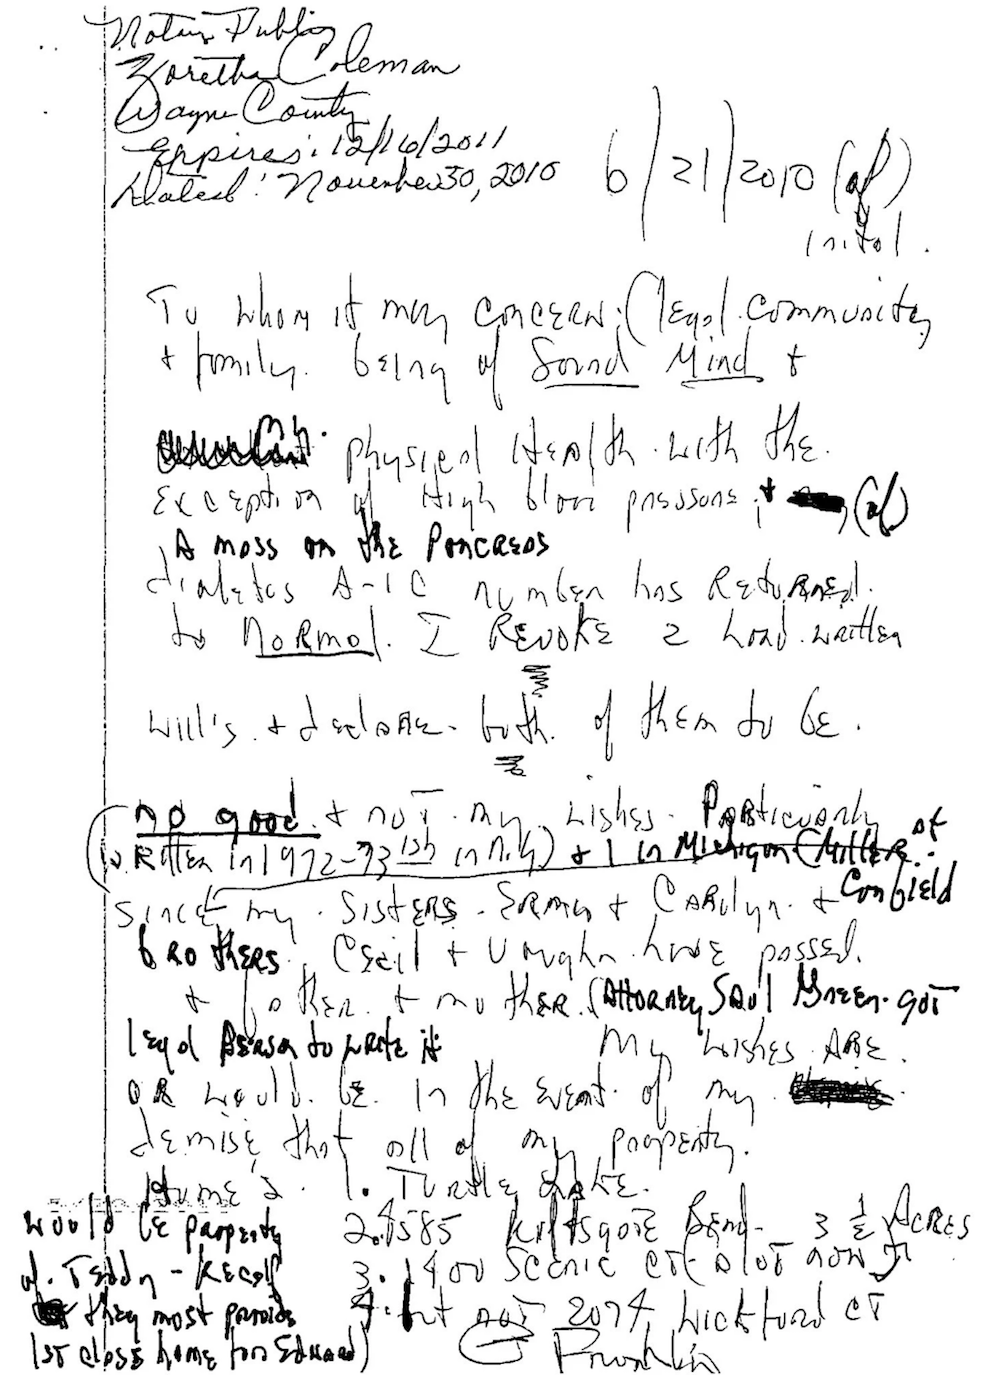 Notary Public
Zoretha Coleman
Wayne County
Expires: 12/16/2011
Dated: November 30, 2010
6/21/2010 (af)
inital.
To whom it may concern; (legal community,
+ family. being of Sound Mind +
physical Health. with the.
exception of High blood pressure; + (af)
A mass on the Pancreas
diabetes A-1C number has Returned.
to Normal. I Revoke 2 hand. written
will's. + declare. both. of them to be.
no good. + not. my wishes. Particularly
(written in 1972-73ish in N.Y) + 1 in Michigan (Miller. of
Canfield
since my. sisters. Erma + Carolyn. +
brothers. Cecil + Vaughn. have passed.
+ father. + mother. (Attorney Saul Green. got
legal person to write it
My wishes are.
or would. be. in the event. of my
demise, that all of my property.
Home's. 1. Turtle Lake.
would be property
2. 4585 Kiftsgate Bend- 3 ½ Acres
of. Teddy - Kecalf
3. 1400 Scenic Ct- a lot now
they most provide
4. but not 2074 Wickford Ct
1st class home for Edward)
Franklin